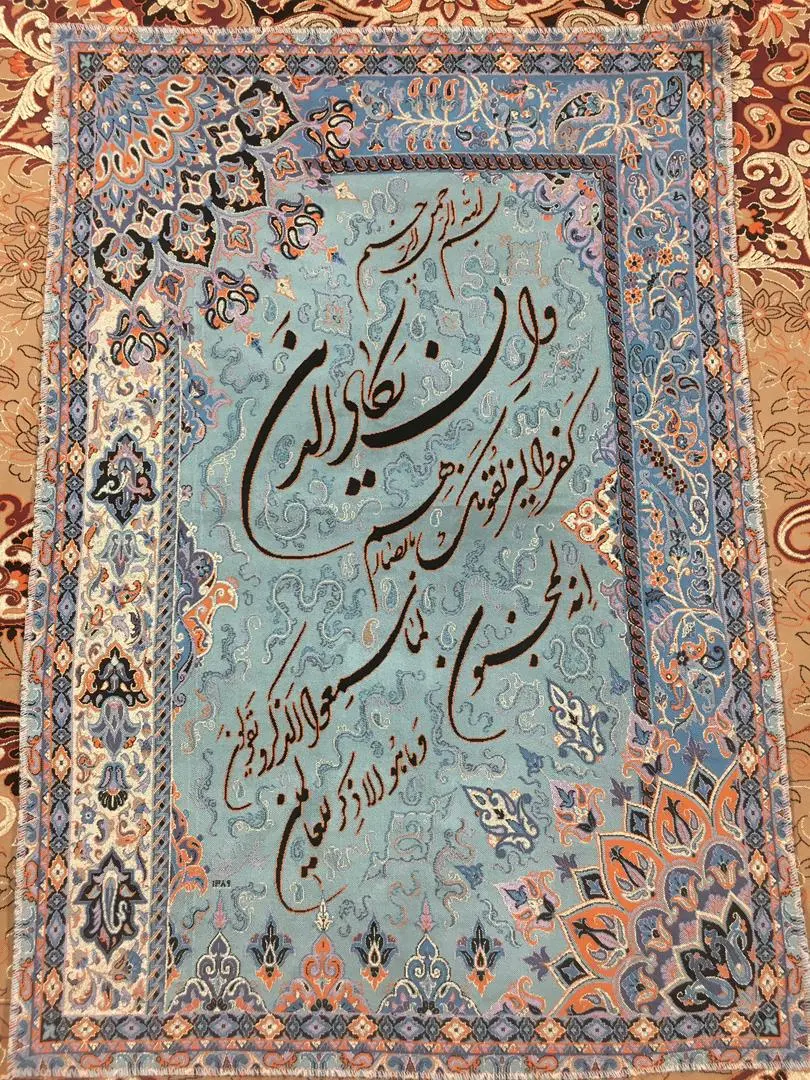 بسم الله الرحمن الرحیم
وَاِن یَکادُ الذینَ
کَفَروا لَیُزلِقونَکَ بِاَبصارِهِم
لَمّا سَمِعوا الذِکرَ وَیَقولونَ
اِنَّهُ لَمَجنون
وَما هُوَ اِلا ذِکر لِلعالَمین
۱۳۸۹